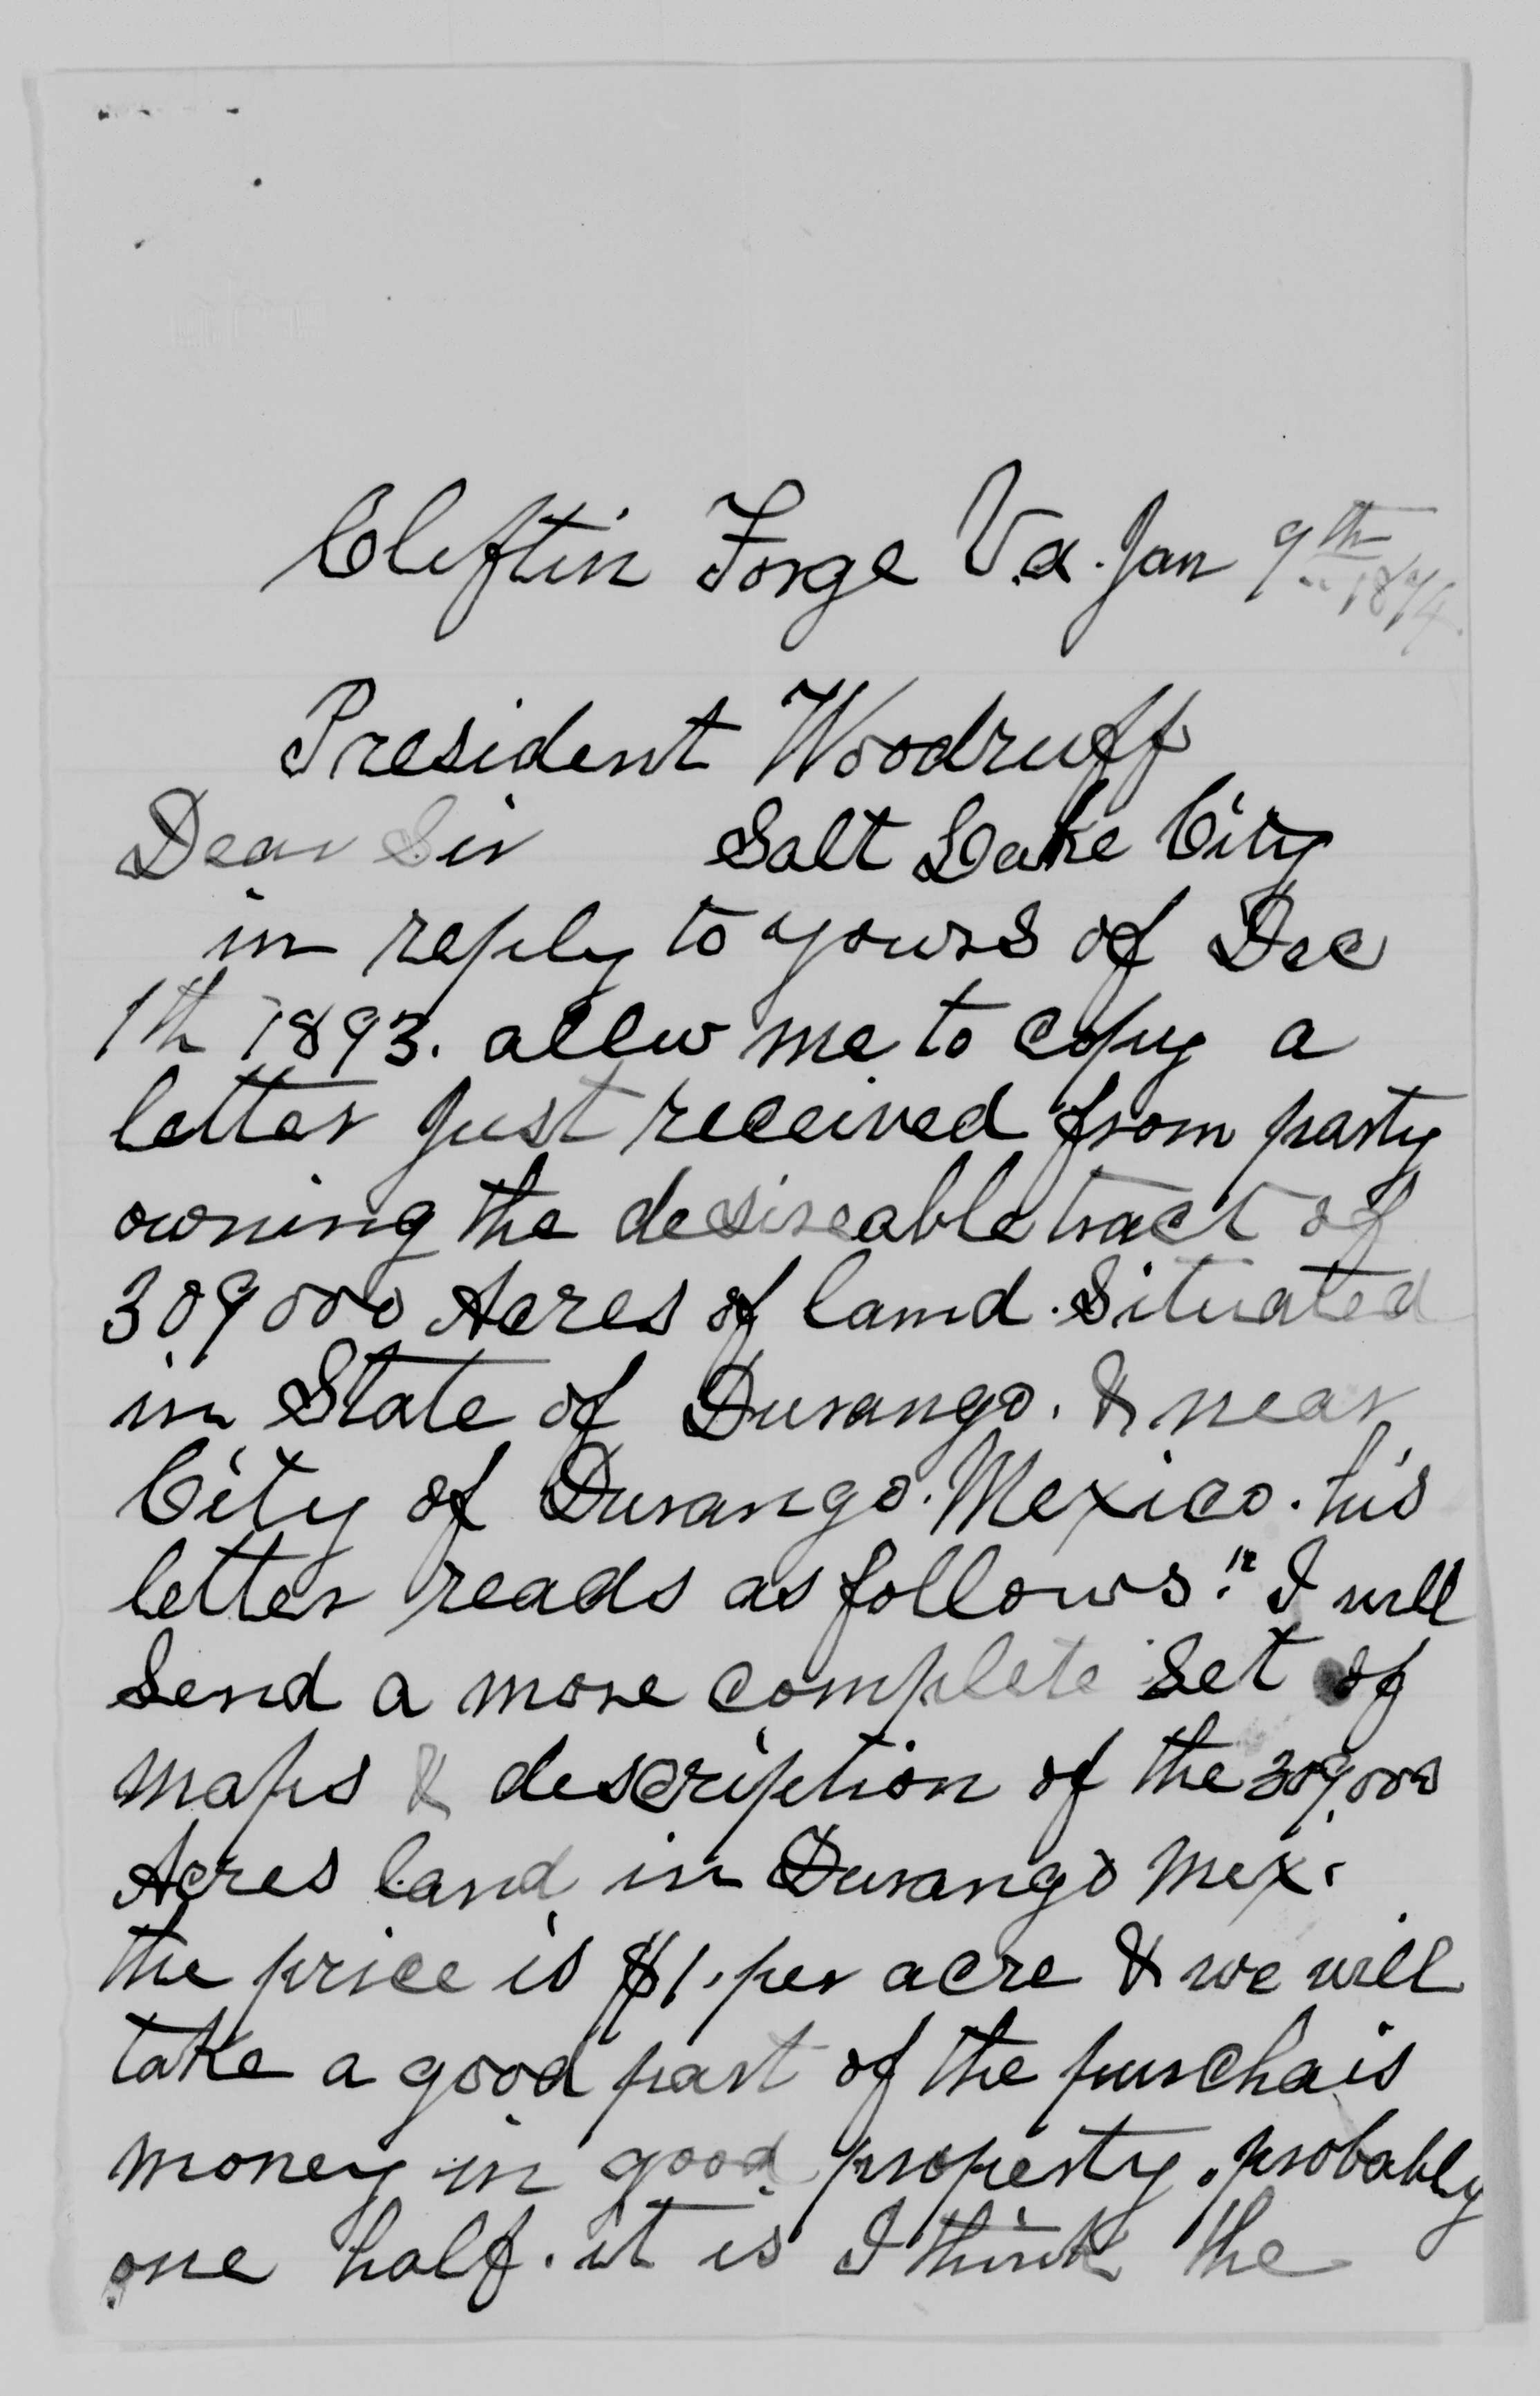 Cleftin Forge Va. Jan 9th 1894.
President Woodruff
Dear Sir Salt Lake City
in reply to yours of Dec
1th 1893. allow me to copy a
letter just received from party
owning the desireable tract of
309000 Acres of land. Situated
in State of Durango. & near
City of Durango. Mexico. his
letter reads as follows." I will
Send a more complete Set of
maps & description of the 309,000
Acres land in Durango Mex.
the price is $1. per acre & we will
take a good part of the purchais
money in good property. probably
one half. it is I think the